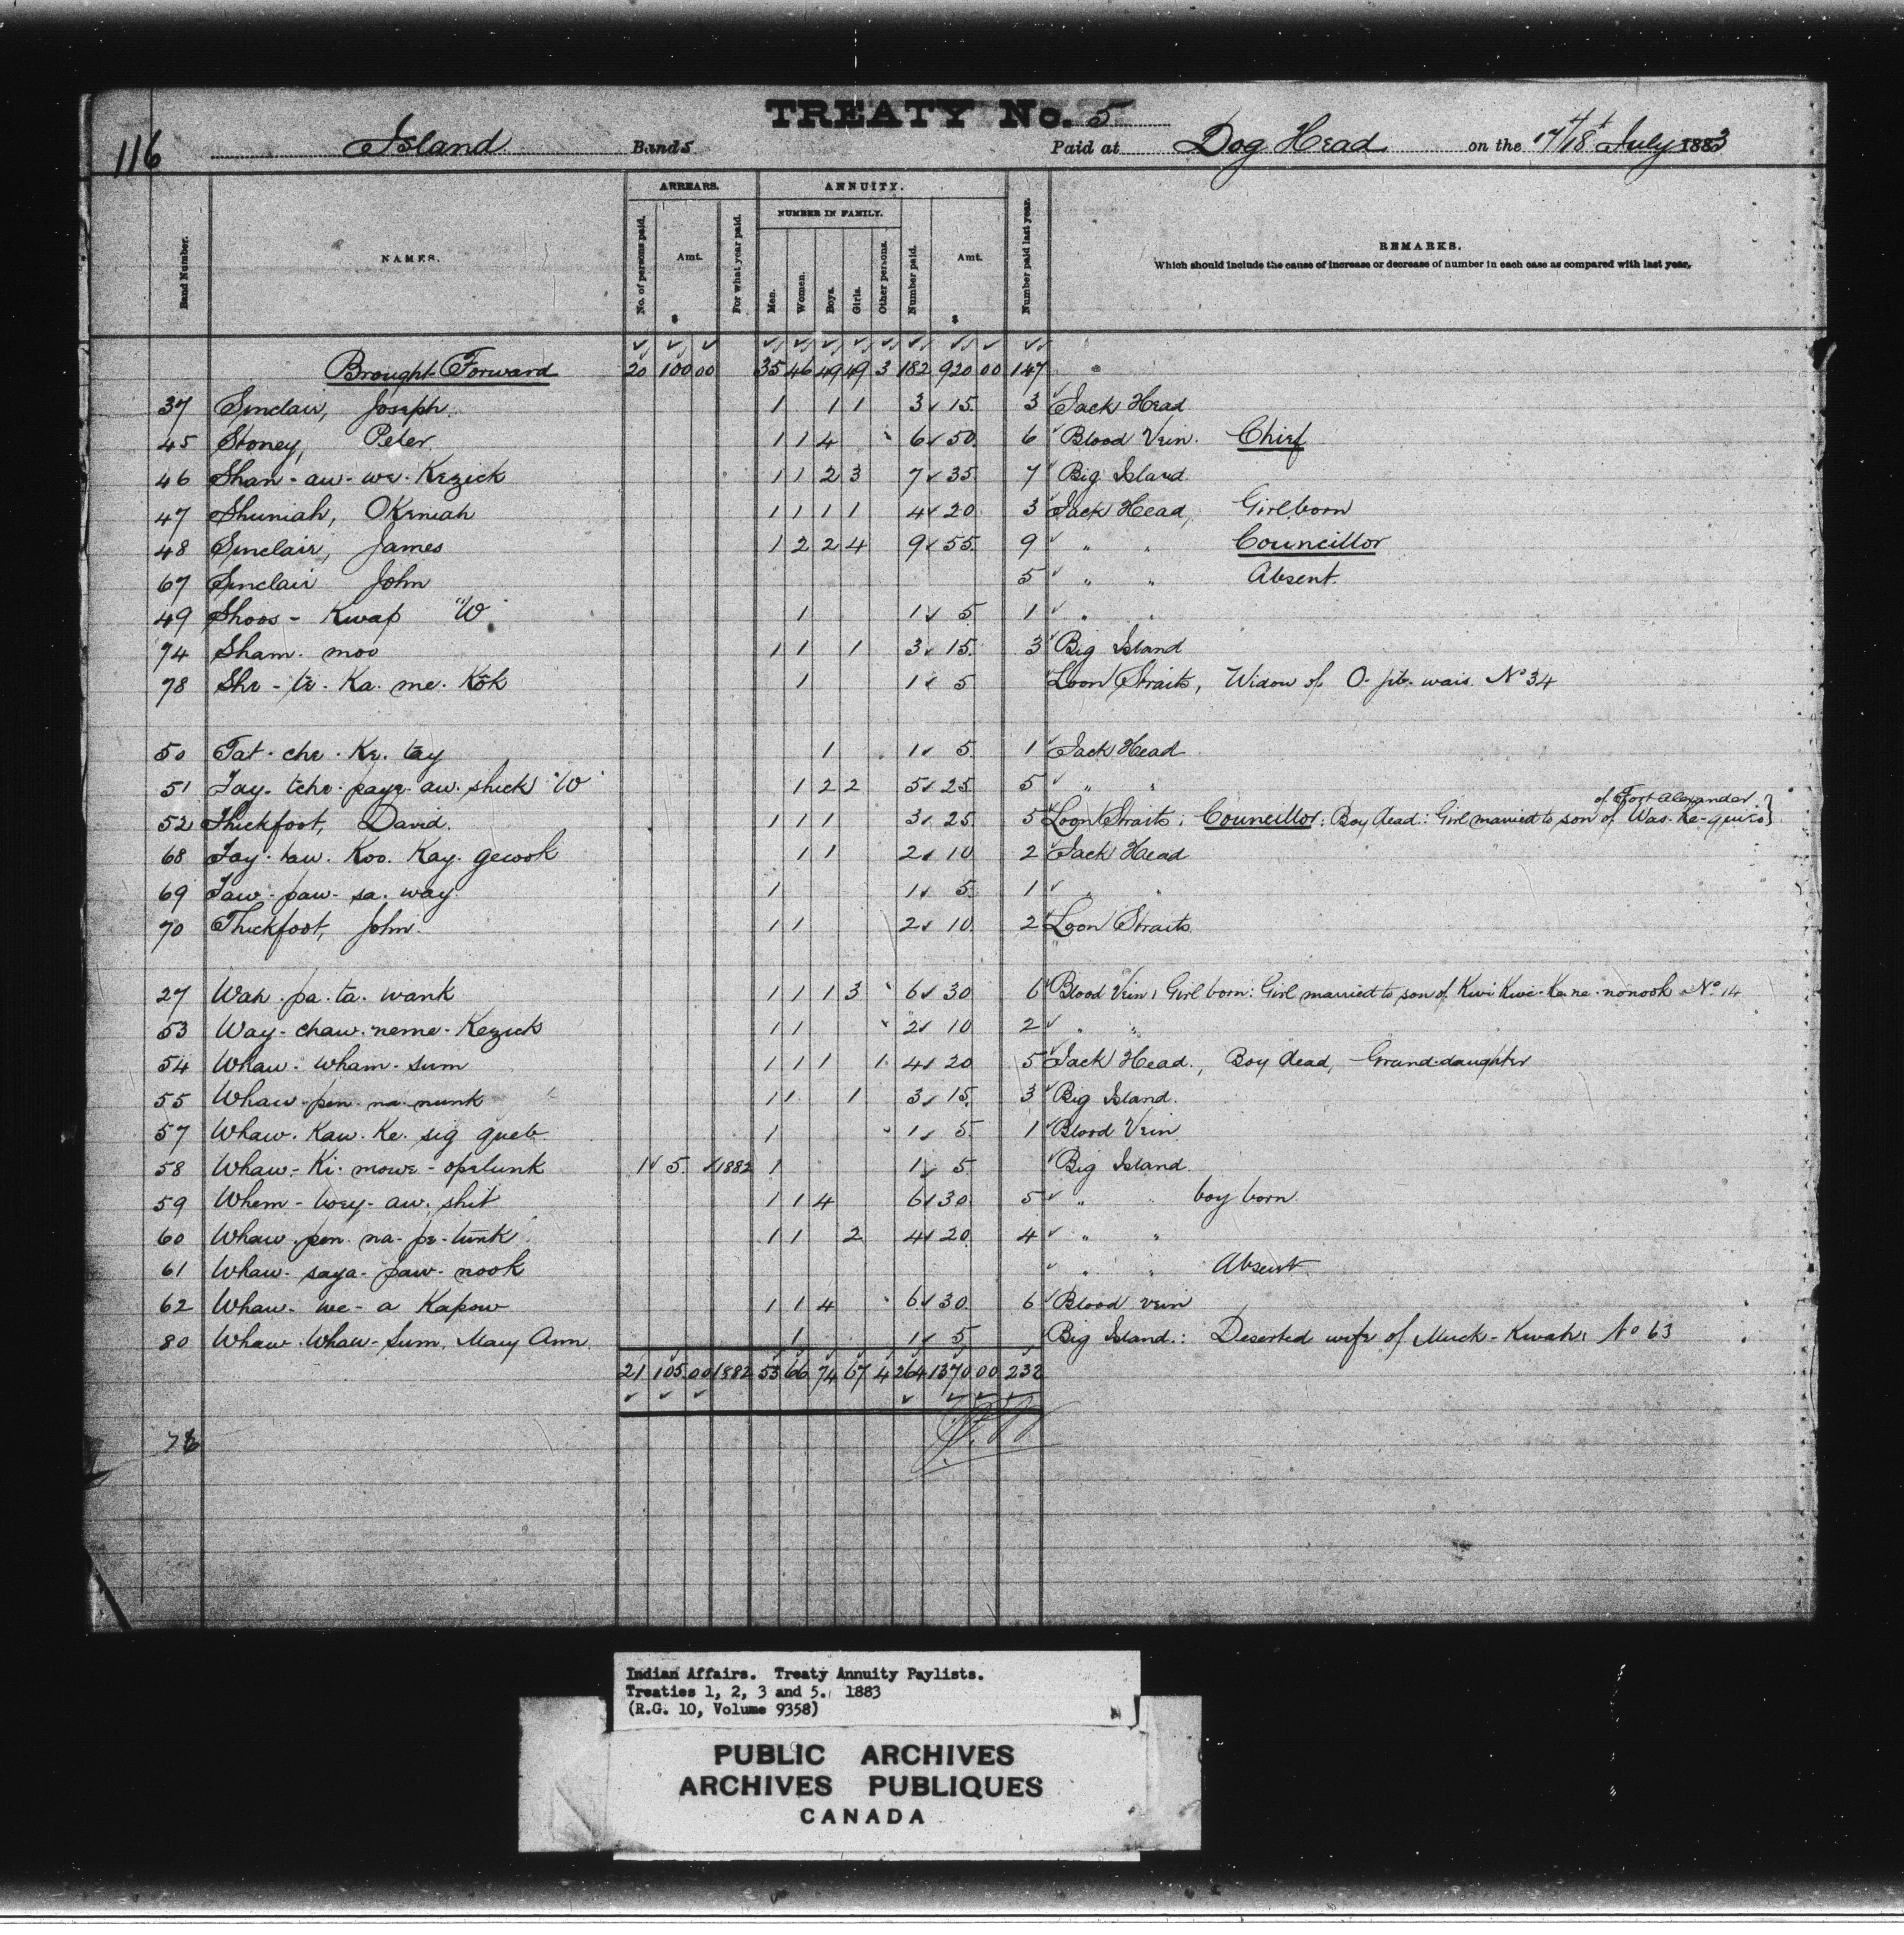 TREATY No. 5
116 Island Bands Paid at Dog Head on the 17th/18th July 1883
Band Number. NAMES. ARREARS. No. of persons paid. Amt. $ For what year paid. ANNUITY. NUMBER IN FAMILY. Men. Women. Boys. Girls. Other persons. Number paid. Amt. $ Number paid last year. REMARKS.
Which should include the cause of increase or decrease of number in each case as compared with last year.
Brought Forward 20 100 00 35 46 49 49 3 182 920 00 147
37 Sinclair, Joseph. 1 1 1 3 15. 3 Jack Head
45 Stoney, Peter. 1 1 4 6 50. 6 Blood Vein. Chief
46 Shan-au-we-Kezick 1 1 2 3 7 35. 7 Big Island
47 Shuniah, OKeniah 1 1 1 1 4 20 3 Jack Head, Girl born
48 Sinclair, James 1 2 2 4 9 55. 9 " " Councillor
67 Sinclair John 5 " " Absent.
49 Shoos-Kwap "W" 1 1 5. 1 " "
74 Sham-moo 1 1 1 3 15. 3 Big Island
78 She-te-Ka-me-Kok 1 1 5 Loon Straits, Widow of O-pit-wais No 34
50 Tat-che-Ke-tay 1 1 5. 1 Jack Head
51 Tay-tche-paye-au-shick "W" 1 2 2 5 25. 5 " "
of Fort Alexander
52 Thickfoot, David. 1 1 1 3 25 5 Loon Straits; Councillor: Boy dead: Girl married to son of Was-ke-quis}
68 Tay-taw-Koo-Kay-gewok 1 1 2 10 2 Jack Head
69 Taw-paw-sa-way 1 1 5. 1 " "
70 Thickfoot, John. 1 1 2 10 2 Loon Straits
27 Wah-pa-ta-wank 1 1 1 3 6 30 6 Blood Vein, Girl born: Girl married to son of Kwi Kwe-Ke ne-nonook No 14
53 Way-chaw-neme-Kezick 1 1 2 10 2 " "
54 Whaw-wham-sum 1 1 1 1 4 20 5 Jack Head., Boy dead, Grand-daughter
55 Whaw-pen-na-nunk 1 1 1 3 15. 3 Big Island.
57 Whaw-Kaw-Ke-sig queb 1 1 5. 1 Blood Vein
58 Whaw-Ki-mowe-opelunk 1 5. 1882 1 1 5. Big Island.
59 Whem-tvey-aw-shit 1 1 4 6 30. 5 " " boy born
60 Whaw-pen-na-pe-tunk 1 1 2 4 20. 4 " "
61 Whaw-saya-paw-nook " " Absent.
62 Whaw-we-a Kapow 1 1 4 6 30. 6 Blood vein
80 Whaw-Whaw-Sum, Mary Ann. 1 1 5 Big Island.: Deserted wife of Muck-Kwah; No 63
21 105 00 1882 53 66 74 67 4 264 1370 00 232
Indian Affairs. Treaty Annuity Paylists.
Treaties 1, 2, 3 and 5. 1883
(R.G. 10, Volume 9358)
PUBLIC ARCHIVES
ARCHIVES PUBLIQUES
CANADA